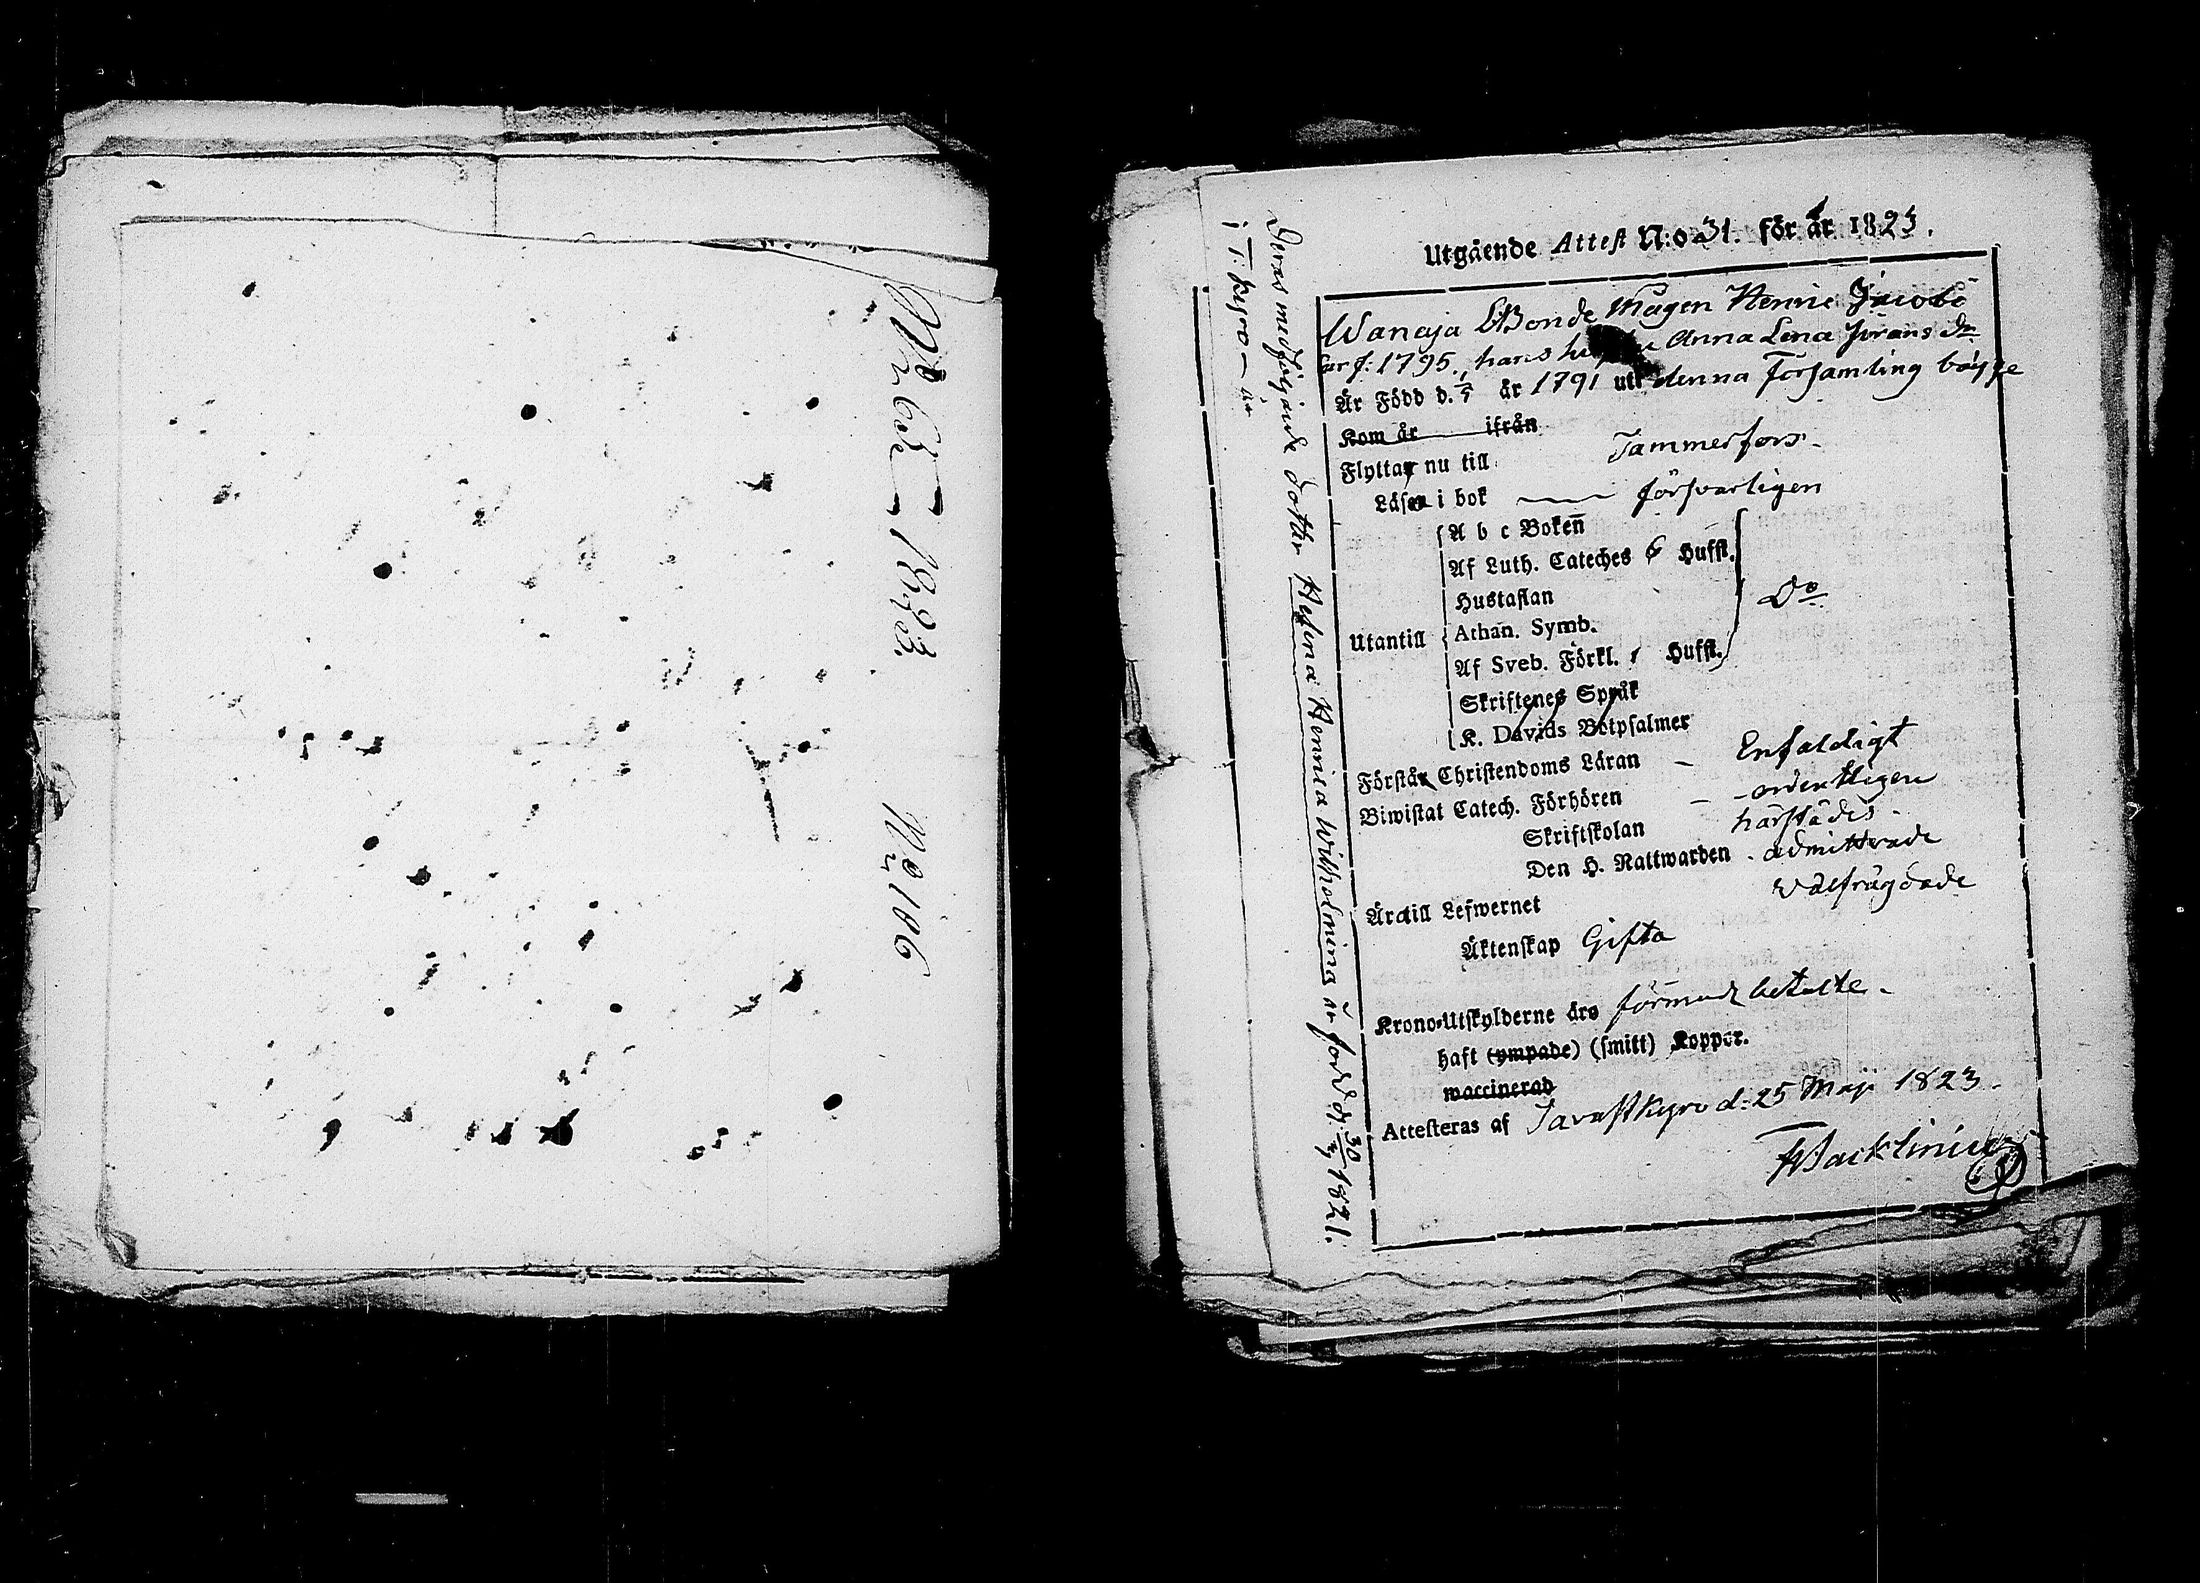 N:o 62 — 1823.
N:o 106
Utgående Attest N:o 31. för år 1823.
Wanaja Bonde Mågen Henric Jacobs
är f: 1795, hans Anna Lena Jörans dr
Är Född d. år 1791 uti denna Församling bägge
Kom år ifrån
Flyttar nu till Tammerfors.
Läser i bok — försvarligen
A b c Boken
Af Luth. Cateches 6 Hufst.
Hustaflan
Utantill Athan. Symb. Do
Af Sveb. Förkl. Hufst.
Skriftenes Språk
K. Davids Botpsalmer
Förstår Christendoms Läran — Enfaldigt
Biwistat Catech. Förhören — ordentligen
Skriftskolan härstädes.
Den H. Nattwarden. admitterade
Äro till Lefwernet välfrägdade
Äktenskap Gifta
Krono-Utskylderne äro förmodl betalte.
haft (ympade) (smitt) Koppor.
waccinerad
Attesteras af Tavastkyro d: 25 Maji 1823.
FWacklinius
Deras medföljande dotter Helena Henrica Wilhelmina är född d: 30 1821.
i T: kyro — är